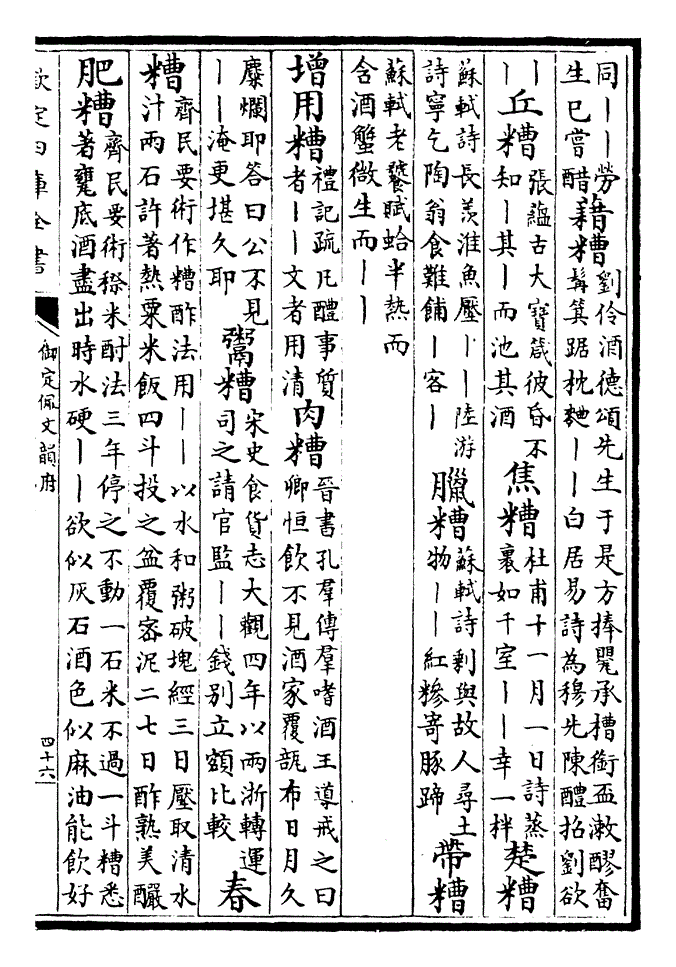 同丨丨勞
生已嘗醋
藉糟
劉伶酒德頌先生于是方捧甖承槽銜盃漱醪奮
髯箕踞枕麴丨丨白居易詩為穆先陳醴招劉欲
丨
丨
丘糟
張蘊古大寶箴彼昏不
知丨其丨而池其酒
焦糟
杜甫十一月一日詩蒸
裹如千室丨丨幸一柈
楚糟
蘇軾詩長羨淮魚壓丨丨陸游
詩寧乞陶翁食難餔丨客丨
臘糟
蘇軾詩剩與故人尋土
物丨丨紅糝寄豚蹄
帶糟
蘇軾老饕賦蛤半熱而
含酒蟹微生而丨丨
增用糟
禮記疏凡醴事質
者丨丨文者用清
肉糟
晉書孔羣傳羣嗜酒王導戒之曰
卿恒飲不見酒家覆瓿布日月久
糜爛耶答曰公不見
丨丨淹更堪久耶
鬻糟
宋史食貨志大觀四年以兩浙轉運
司之請官監丨丨錢别立額比較
春
糟
齊民要術作糟酢法用丨丨以水和粥破塊經三日壓取清水
汁兩石許著熱粟米飯四斗投之盆覆密泥二七日酢熟美釅
肥糟
齊民要術穄米酎法三年停之不動一石米不過一斗糟悉
著甕底酒盡出時水硬丨丨欲似灰石酒色似麻油能飲好
欽定四庫全書
御定佩文韻府
四十六